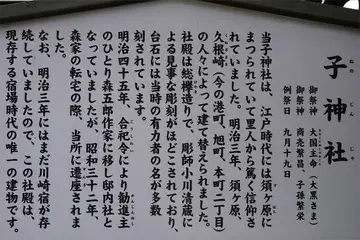 子神社
ねのじんじゃ
御祭神　大国主命（大黒さま）
御祭神　商売繁昌、子孫繁栄
例祭日　九月十九日
当子神社は、江戸時代には須ヶ原に
まつられていて里人から篤く信仰さ
れていました。明治三年、須ヶ原、
久根崎（今の港町、旭町、本町二丁目）
の人々によって建て替えられました。
社殿は総欅造りで、彫師小川清蔵に
よる見事な彫刻がほどこされており、
台石には当時の有力者の名が多数
刻まれています。
明治四十五年、合祀令により勧進主
のひとり森五郎作家に移し邸内社と
なっていましたが、昭和三十二年、
森家の転宅の際、当所に遷座されま
した。
なお、明治三年にはまだ川崎宿が存
続していましたので、この社殿は、
現存する宿場時代の唯一の建物です。